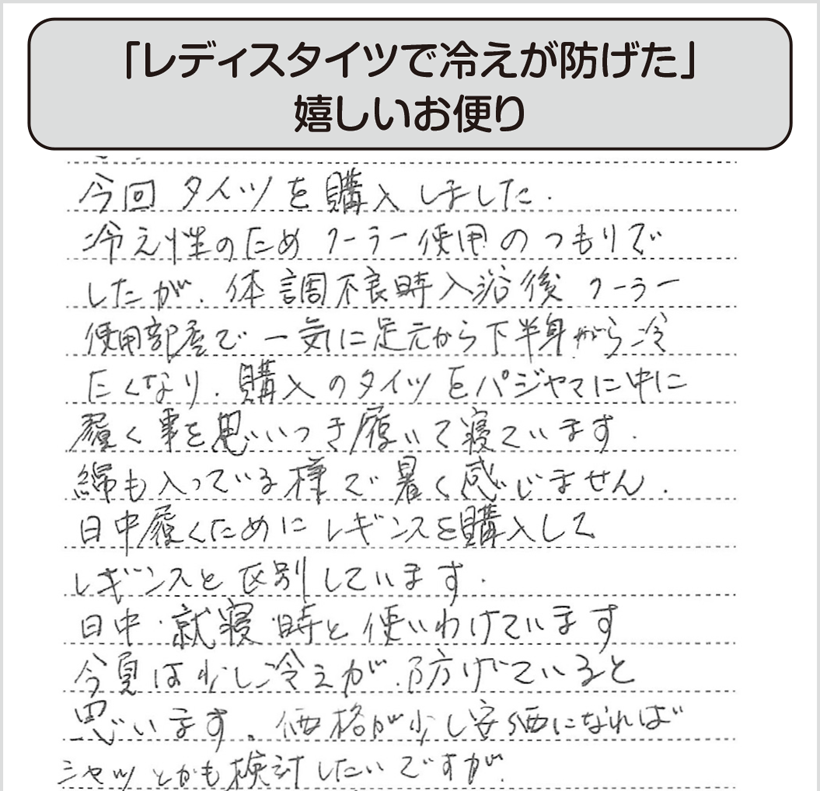 「レディスタイツで冷えが防げた」
嬉しいお便り
今回 タイツを購入しました.
冷え性のため クーラー使用のつもりで
したが、体調不良時入浴後 クーラー
使用部屋で 一気に足元から下半身がら冷
たくなり、購入のタイツをパジャマに中に
履く事を思いつき履いて寝ています.
綿も入っている様で 暑く感じません.
日中履くためにレギンスを購入して
レギンスと区別しています.
日中・就寝時と使いわけています
今夏は少し冷えが、防げていると
思います。価格が少し安価になれば
シャツとかも検討したいですが、